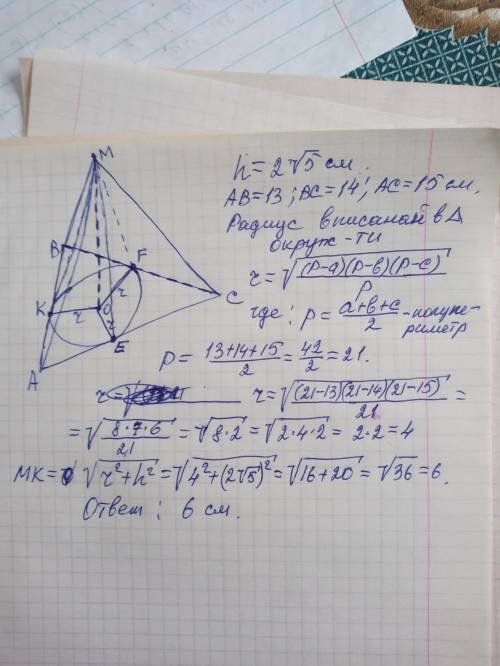 M
B
F
K
r
O
r
r
C
E
A
h = 2√5 см.
AB=13; BC=14; AC=15 см.
Радиус вписаной в Δ
окруж-ти
r = √((p-a)(p-b)(p-c)/p)
где: p = (a+b+c)/2 - полупе-
риметр
p = (13+14+15)/2 = 42/2 = 21.
r = √ r = √((21-13)(21-14)(21-15)/21) =
= √(8·7·6/21) = √(8·2) = √(2·4·2) = 2·2 = 4
MK = √(r²+h²) = √(4²+(2√5)²) = √(16+20) = √36 = 6.
Ответ: 6 см.